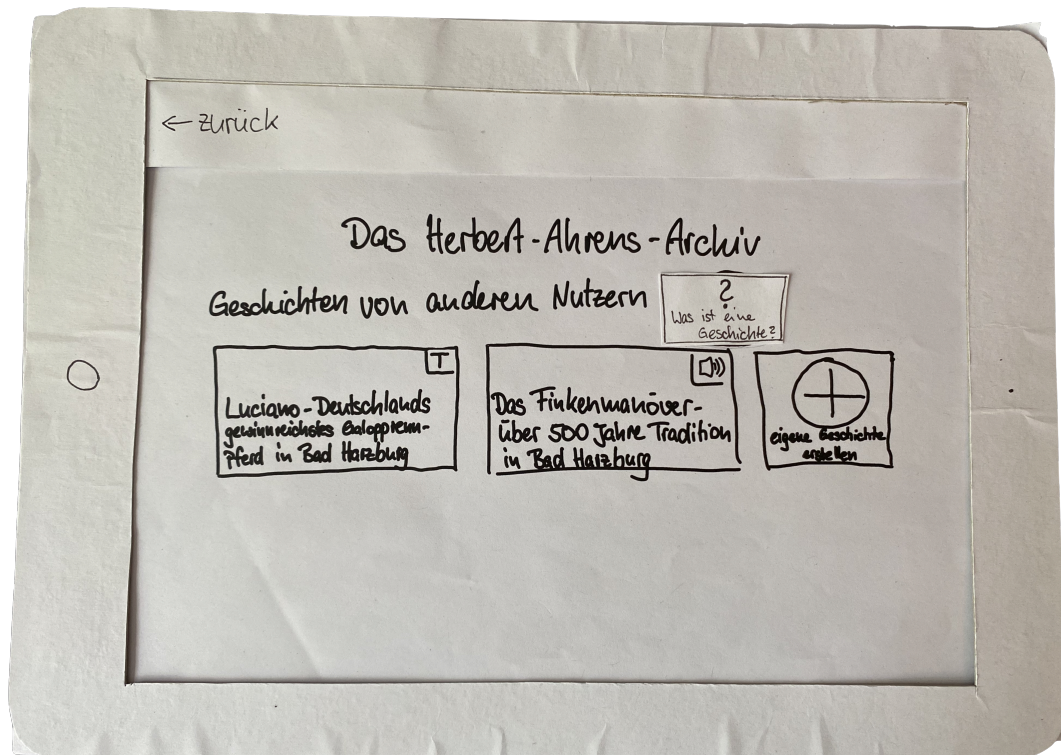 ← zurück
Das Herbert-Ahrens-Archiv
Geschichten von anderen Nutzern
?
Was ist eine
Geschichte?
T
Luciano-Deutschlands
gewinnreichstes Galopprenn-
pferd in Bad Harzburg
Das Finkenmanöver-
Über 500 Jahre Tradition
in Bad Harzburg
eigene Geschichte
erstellen